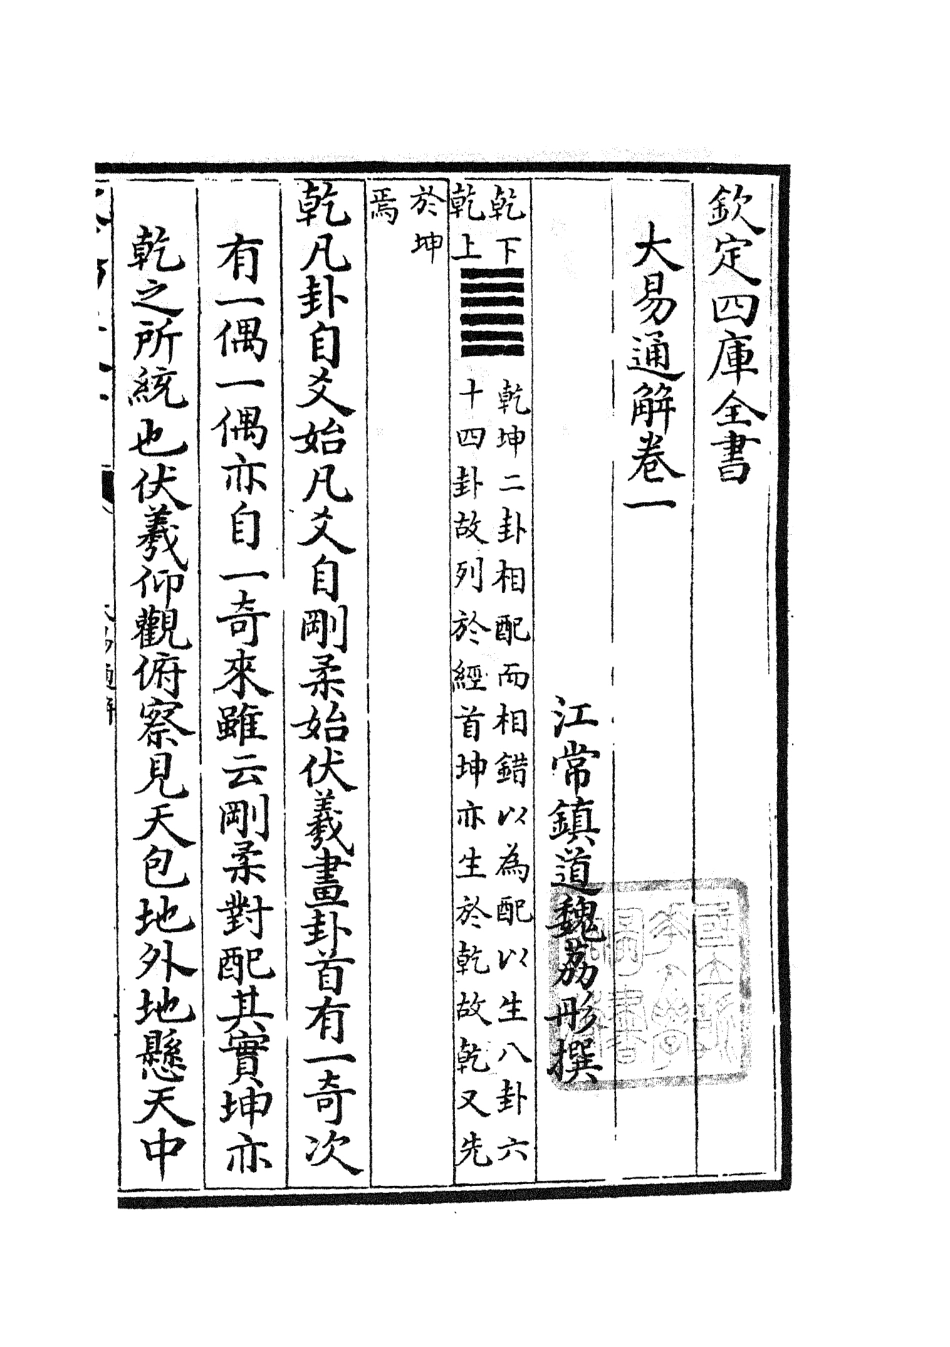 欽定四庫全書
大易通解卷一
江常鎮道魏荔彤撰
乾下
乾上
乾坤二卦相配而相錯以為配以生八卦六
十四卦故列於經首坤亦生於乾故乾又先
於坤
焉
乾凡卦自爻始凡爻自剛柔始伏羲畫卦首有一奇次
有一偶一偶亦自一奇來雖云剛柔對配其實坤亦
乾之所統也伏羲仰觀俯察見天包地外地懸天中